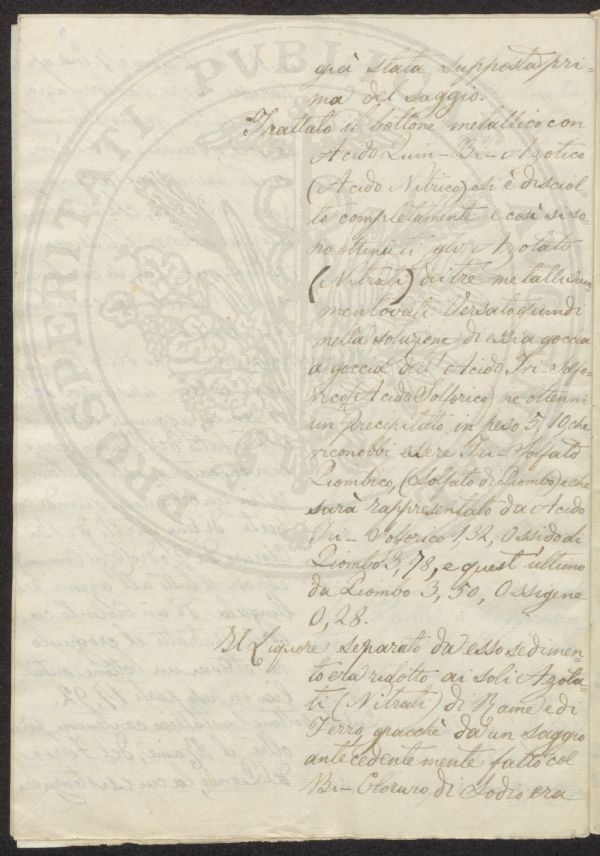 già stata supposta pri-
ma del saggio.
Trattato il bottone metallico con
Acido Quin-Bi-Azotico
(Acido Nitrico) si è disciol-
to completamente e così si so-
no ottenuti gli Azotati
(Nitrati) dei tre metalli sum-
mentovati. Versato quindi
nella soluzione di essi a goccia
a goccia dell'Acido Tri-Solfo-
rico (Acido Solforico) ne ottenni
un precipitato in peso 5,10, che
riconobbi essere Tri-Solfato
Piombico, (Solfato di Piombo) e che
sarà rappresentato da Acido
Tri-Solforico 1,32, Ossido di
Piombo 3,78, e quest'ultimo
da Piombo 3,50, Ossigene
0,28.
Il Liquore separato da esso sedimen-
to era ridotto ai soli Azota-
ti (Nitrati) di Rame e di
Ferro, giacchè da un saggio
antecedentemente fatto col
Bi-Cloruro di Sodio era
PROSPERITATI PUBLICAE